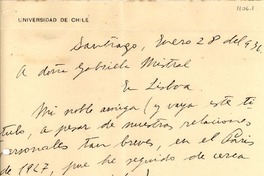 1106.1
UNIVERSIDAD DE CHILE
Santiago, Enero 28 del 936
A doña Gabriela Mistral
En Lisboa
Mi noble amiga (y vaya este tí-
tulo, a pesar de nuestras relaciones
personales tan breves, en el París
de 1927, que he seguido de cerca